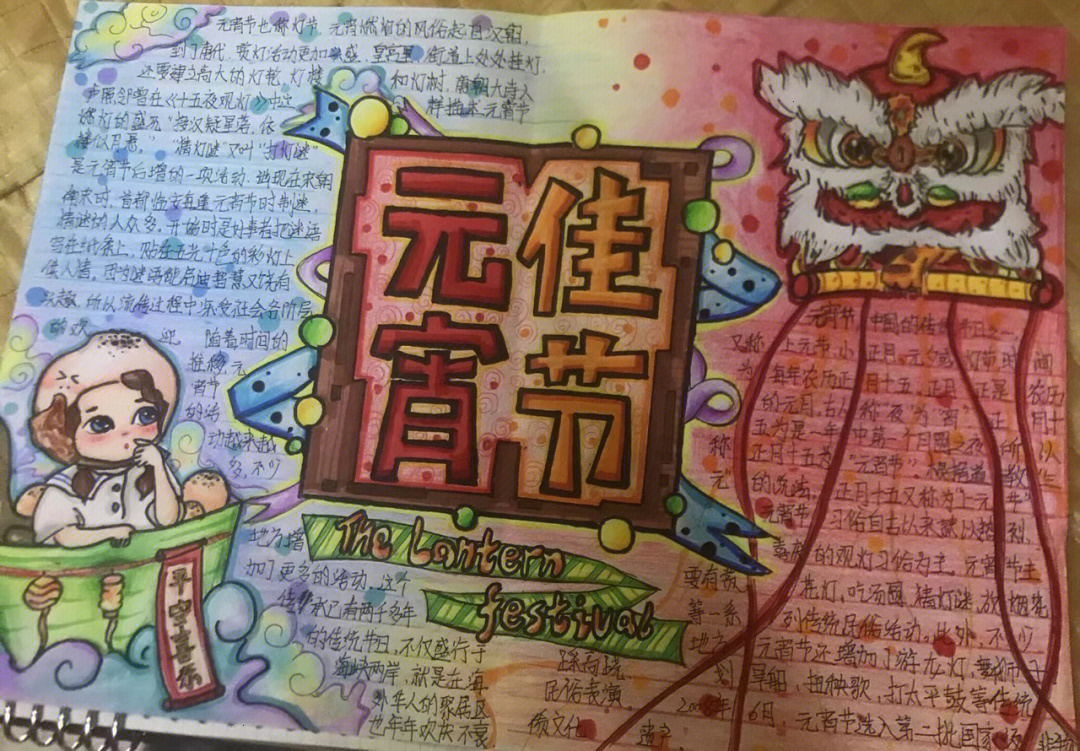 元宵节也称灯节，元宵燃灯的风俗起自汉朝，
到了唐代，赏灯活动更加兴盛，皇宫里、街道上处处挂灯，
还要建立高大的灯轮、灯楼
和灯树，唐朝大诗人
卢照邻曾在《十五夜观灯》中这
样描述元宵节
燃灯的盛况"接汉疑星落，依
楼似月悬。""猜灯谜"又叫"打灯谜"
是元宵节后增的一项活动，出现在宋朝
南宋时，首都临安每逢元宵节时制迷，
猜谜的人众多。开始时是好事者把谜语
写在纸条上，贴在五光十色的彩灯上
供人猜，因为谜语能启迪智慧又饶有
兴趣，所以流传过程中深受社会各阶层
的欢迎 随着时间的
推移，元
宵节
的活
动越来越
多，不少
地方增
加了更多的活动，这个
传承已有两千多年
的传统节日，不仅盛行于
海峡两岸，就是在海
外华人的聚居区
也年年欢庆不衰
元宵
佳节
The Lantern
festival
平安喜乐
元宵节，中国的传统节日之一
又称 上元节、小正月、元夕或灯节，时间
为 每年农历正月十五，正月 正是 农历
的元月，古人称"夜"为"宵"，正月十
五为是一年中第一个月圆之夜，所以
称 正月十五为"元宵节"。根据道教"三
元"的说法，正月十五又称为"上元节"
元宵节 习俗自古以来就以热烈
喜庆的观灯习俗为主，元宵节主
要有赏花灯、吃汤圆、猜灯谜、放烟花
等一系列传统民俗活动。此外，不少
地方元宵节还增加了游龙灯、舞狮子
踩高跷、划旱船、扭秧歌、打太平鼓等传统
民俗表演，2008年6月，元宵节选入第二批国家级非物
质文化遗产